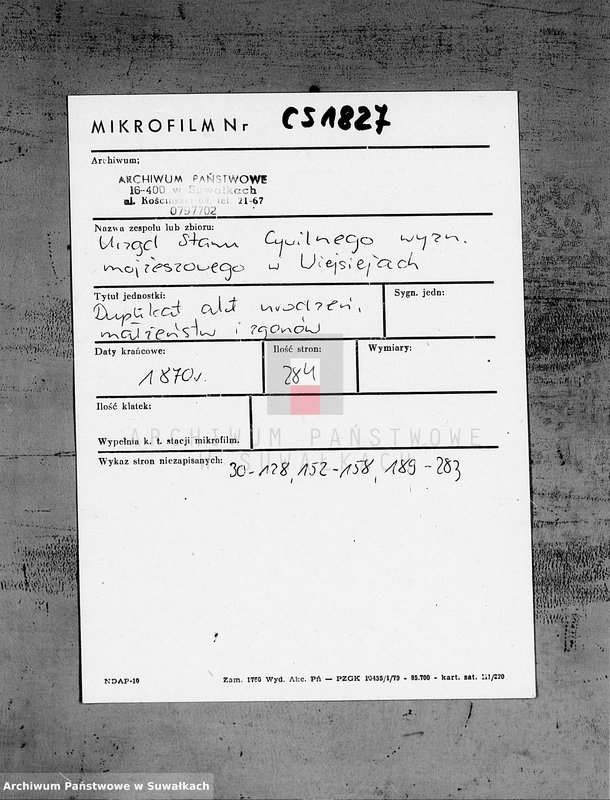 MIKROFILM Nr CS1827
Archiwum:
ARCHIWUM PAŃSTWOWE
16-400 w Suwałkach
ul. Kościuszki 69, tel. 21-67
0797702
Nazwa zespołu lub zbioru:
Urząd Stanu Cywilnego wyzn.
mojżeszowego w Wiejsiejach
Tytuł jednostki:
Sygn. jedn:
Duplikat akt urodzeń,
małżeństw i zgonów
Daty krańcowe:
Ilość stron:
Wymiary:
1870 r.
284
Ilość klatek:
ARCHIWUM PAŃSTWOWE
W SUWAŁKACH
Wypełnia k. t. stacji mikrofilm.
Wykaz stron niezapisanych: 30-128, 152-158, 189-283
NDAP-10
Zam. 1760 Wyd. Akc. Pń — PZGK 10455/1/79 - 85.700 - kart. sat. III/220
Archiwum Państwowe w Suwałkach